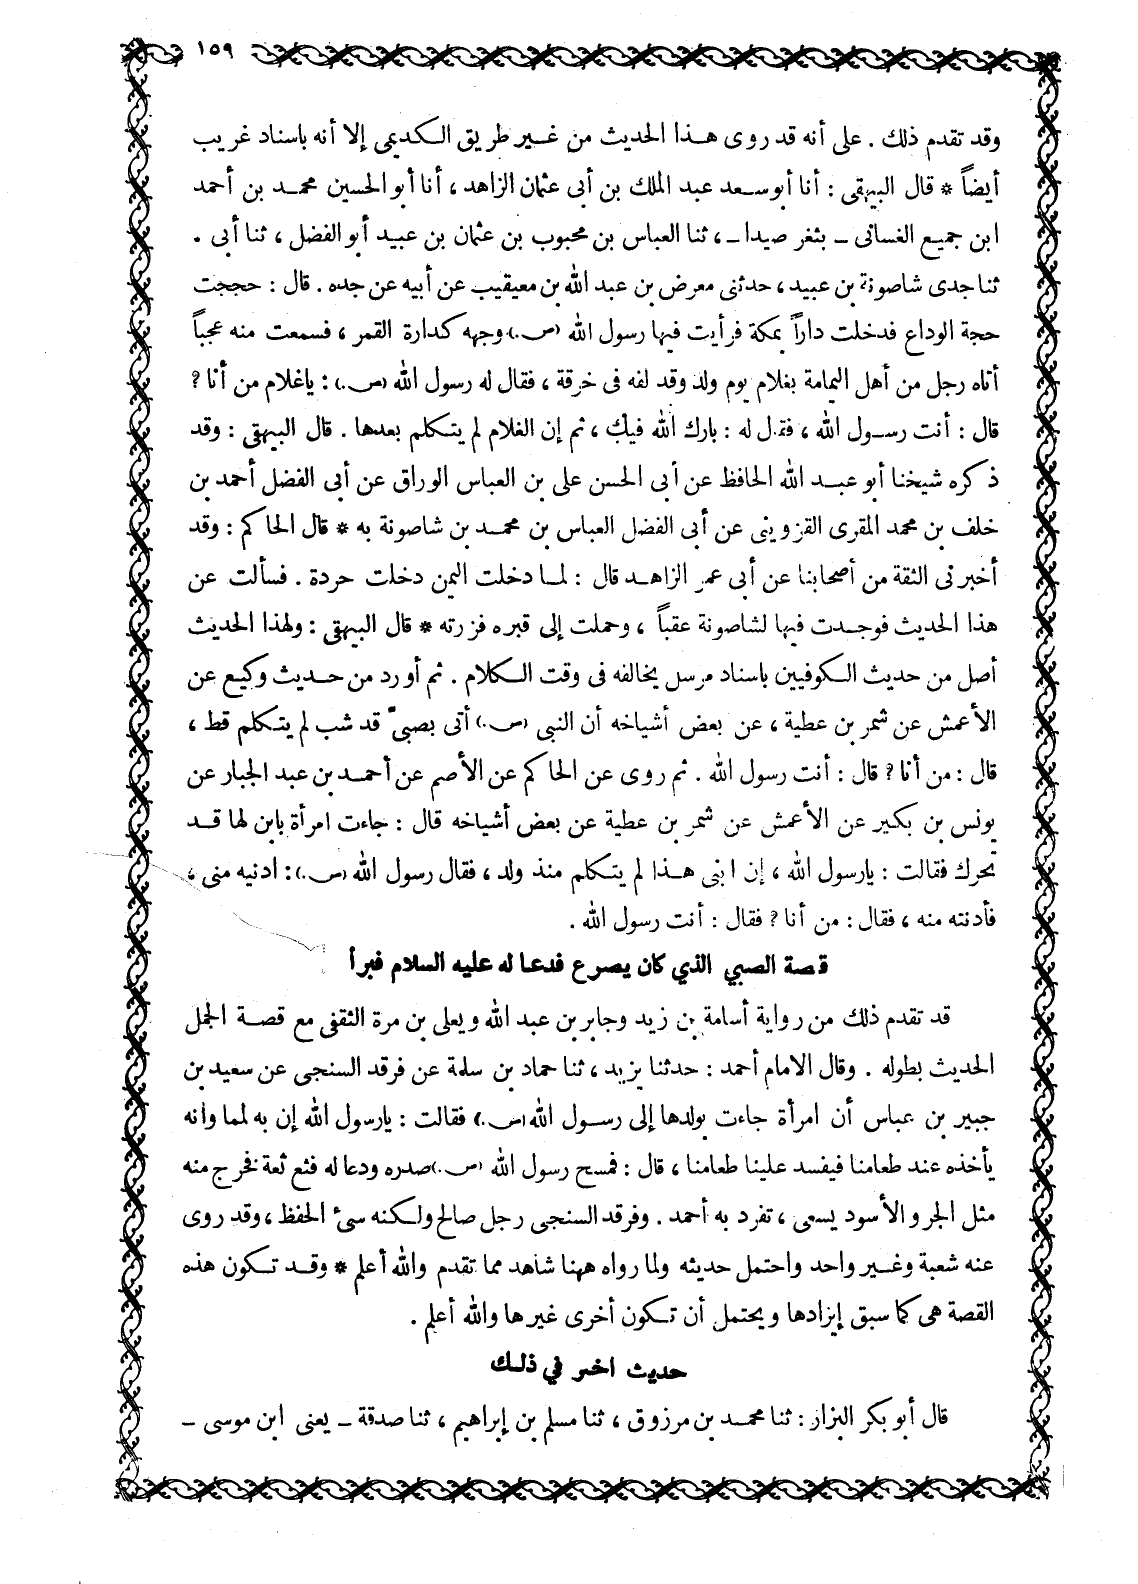 ١٥٩
وقد تقدم ذلك . على أنه قد روى هذا الحديث من غير طريق الكديمى إلا أنه باسناد غريب
أيضاً * قال البيهقى : أنا أبو سعد عبد الملك بن أبى عثمان الزاهد ، أنا أبو الحسين محمد بن أحمد
ابن جميع الغسانى ــ بثغر صيدا ــ ، ثنا العباس بن محبوب بن عثمان بن عبيد أبو الفضل ، ثنا أبى .
ثنا جدى شاصونة بن عبيد ، حدثنى معرض بن عبد الله بن معيقيب عن أبيه عن جده . قال : حججت
حجة الوداع فدخلت داراً بمكة فرأيت فيها رسول الله (ص.) وجهه كدارة القمر ، فسمعت منه عجباً
أتاه رجل من أهل اليمامة بغلام يوم ولد وقد لفه فى خرقة ، فقال له رسول الله (ص.) : ياغلام من أنا ؟
قال : أنت رسول الله ، فقال له : بارك الله فيك ، ثم إن الغلام لم يتكلم بعدها . قال البيهقى : وقد
ذكره شيخنا أبو عبد الله الحافظ عن أبى الحسن على بن العباس الوراق عن أبى الفضل أحمد بن
خلف بن محمد المقرى القزوينى عن أبى الفضل العباس بن محمد بن شاصونة به * قال الحاكم : وقد
أخبرنى الثقة من أصحابنا عن أبى عمر الزاهد قال : لما دخلت اليمن دخلت حردة . فسألت عن
هذا الحديث فوجدت فيها لشاصونة عقباً ، وحملت إلى قبره فزرته * قال البيهقى : ولهذا الحديث
أصل من حديث الكوفيين باسناد مرسل يخالفه فى وقت الكلام . ثم أورد من حديث وكيع عن
الأعمش عن شمر بن عطية ، عن بعض أشياخه أن النبى (ص.) أتى بصبىّ قد شب لم يتكلم قط ،
قال : من أنا ؟ قال : أنت رسول الله . ثم روى عن الحاكم عن الأصم عن أحمد بن عبد الجبار عن
يونس بن بكير عن الأعمش عن شمر بن عطية عن بعض أشياخه قال : جاءت امرأة بابن لها قد
تحرك فقالت : يارسول الله ، إن ابنى هذا لم يتكلم منذ ولد ، فقال رسول الله (ص.) : ادنيه منى ،
فأدنته منه ، فقال : من أنا ؟ فقال : أنت رسول الله .
قصة الصبي الذي كان يصرع فدعا له عليه السلام فبرأ
قد تقدم ذلك من رواية أسامة بن زيد وجابر بن عبد الله ويعلى بن مرة الثقفى مع قصة الجمل
الحديث بطوله . وقال الامام أحمد : حدثنا يزيد ، ثنا حماد بن سلمة عن فرقد السنجى عن سعيد بن
جبير بن عباس أن امرأة جاءت بولدها إلى رسول الله (ص.) فقالت : يارسول الله إن به لمما وأنه
يأخذه عند طعامنا فيفسد علينا طعامنا ، قال : فمسح رسول الله (ص.) صدره ودعا له فثع ثعة فخرج منه
مثل الجرو الأسود يسعى ، تفرد به أحمد . وفرقد السنجى رجل صالح ولكنه سىء الحفظ ، وقد روى
عنه شعبة وغير واحد واحتمل حديثه ولما رواه ههنا شاهد مما تقدم والله أعلم * وقد تكون هذه
القصة هى كما سبق إيزادها ويحتمل أن تكون أخرى غيرها والله أعلم .
حديث اخر في ذلك
قال أبو بكر البزار : ثنا محمد بن مرزوق ، ثنا مسلم بن إبراهيم ، ثنا صدقة ــ يعنى ابن موسى ــ